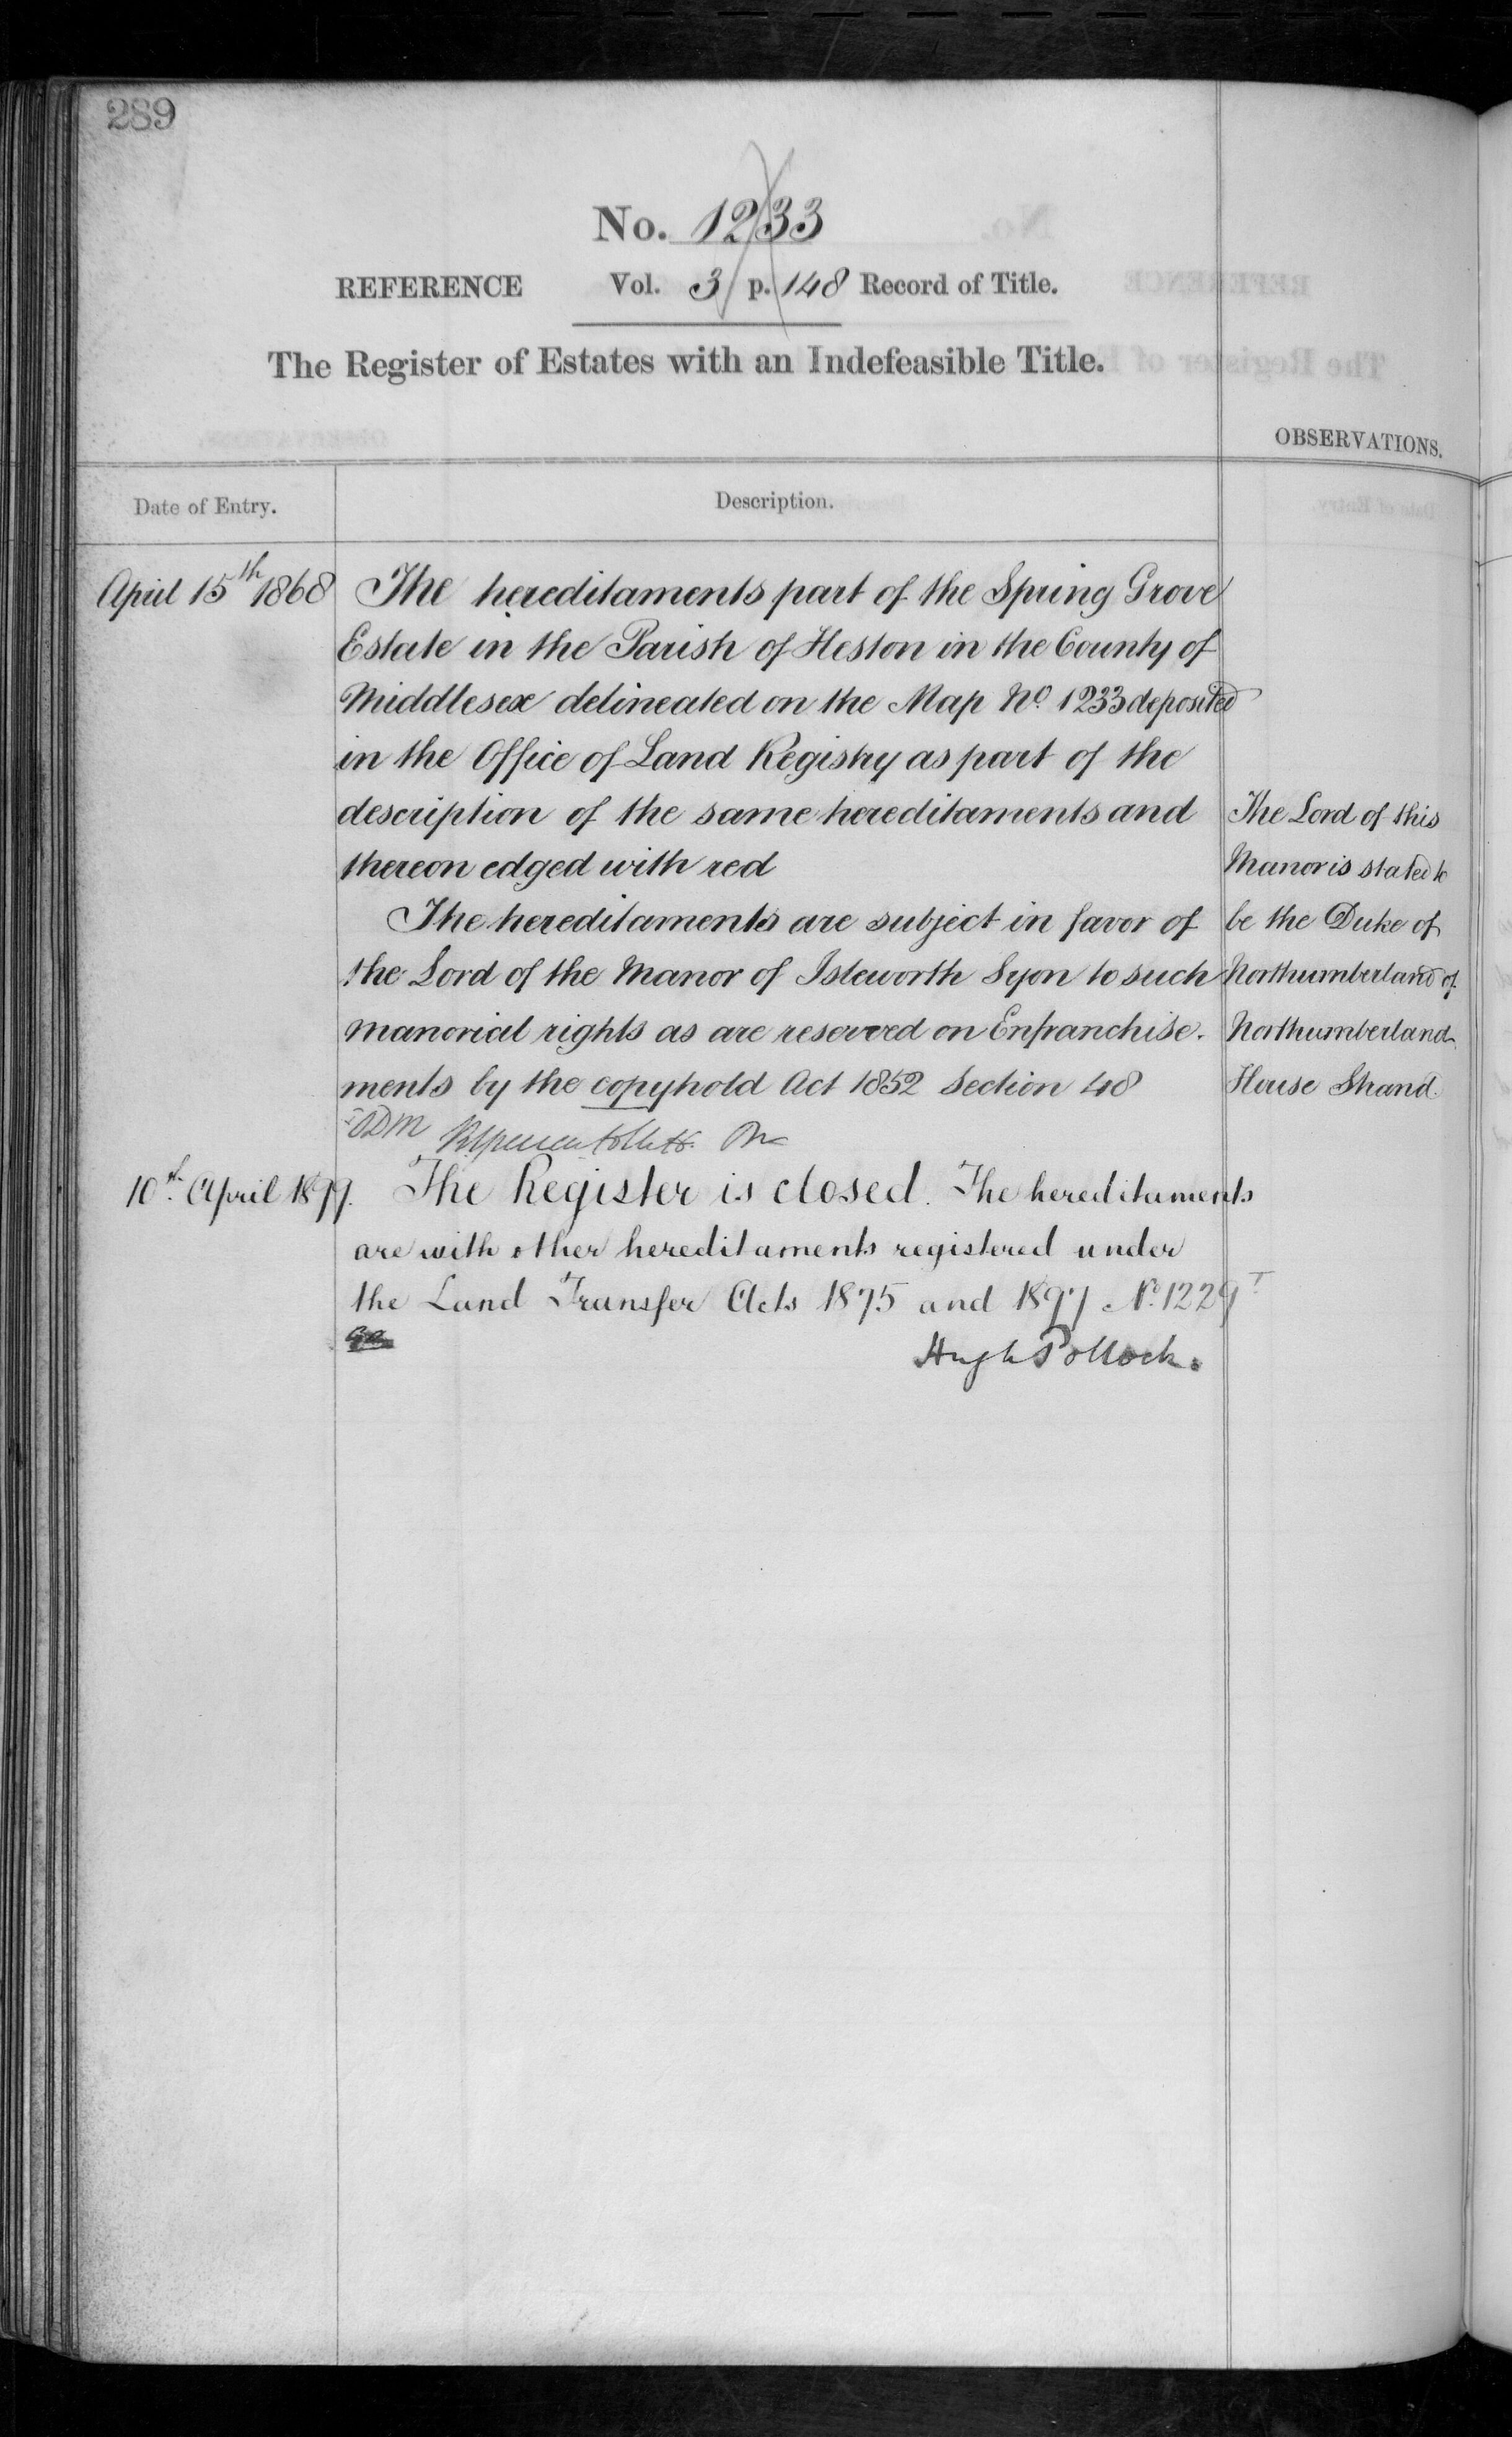 289
No. 1233
REFERENCE Vol. 3 p. 148 Record of Title.
The Register of Estates with an Indefeasible Title.
OBSERVATIONS.
Date of Entry.
Description.
April 15th 1868
The hereditaments part of the Spring Grove
Estate in the Parish of Heston in the County of
Middlesex delineated on the Map No. 1233 deposited
in the Office of Land Registry as part of the
description of the same hereditaments and
thereon edged with red
The hereditaments are subject in favor of
the Lord of the Manor of Isleworth Syon to such
manorial rights as are reserved on Enfranchise-
ments by the copyhold Act 1852 Section 48
The Lord of this
Manor is stated to
be the Duke of
Northumberland of
Northumberland
House Strand.
10th April 1899.
The Register is closed. The hereditaments
are with other hereditaments registered under
the Land Transfer Acts 1875 and 1897 No. 1229
Hugh Pollock.